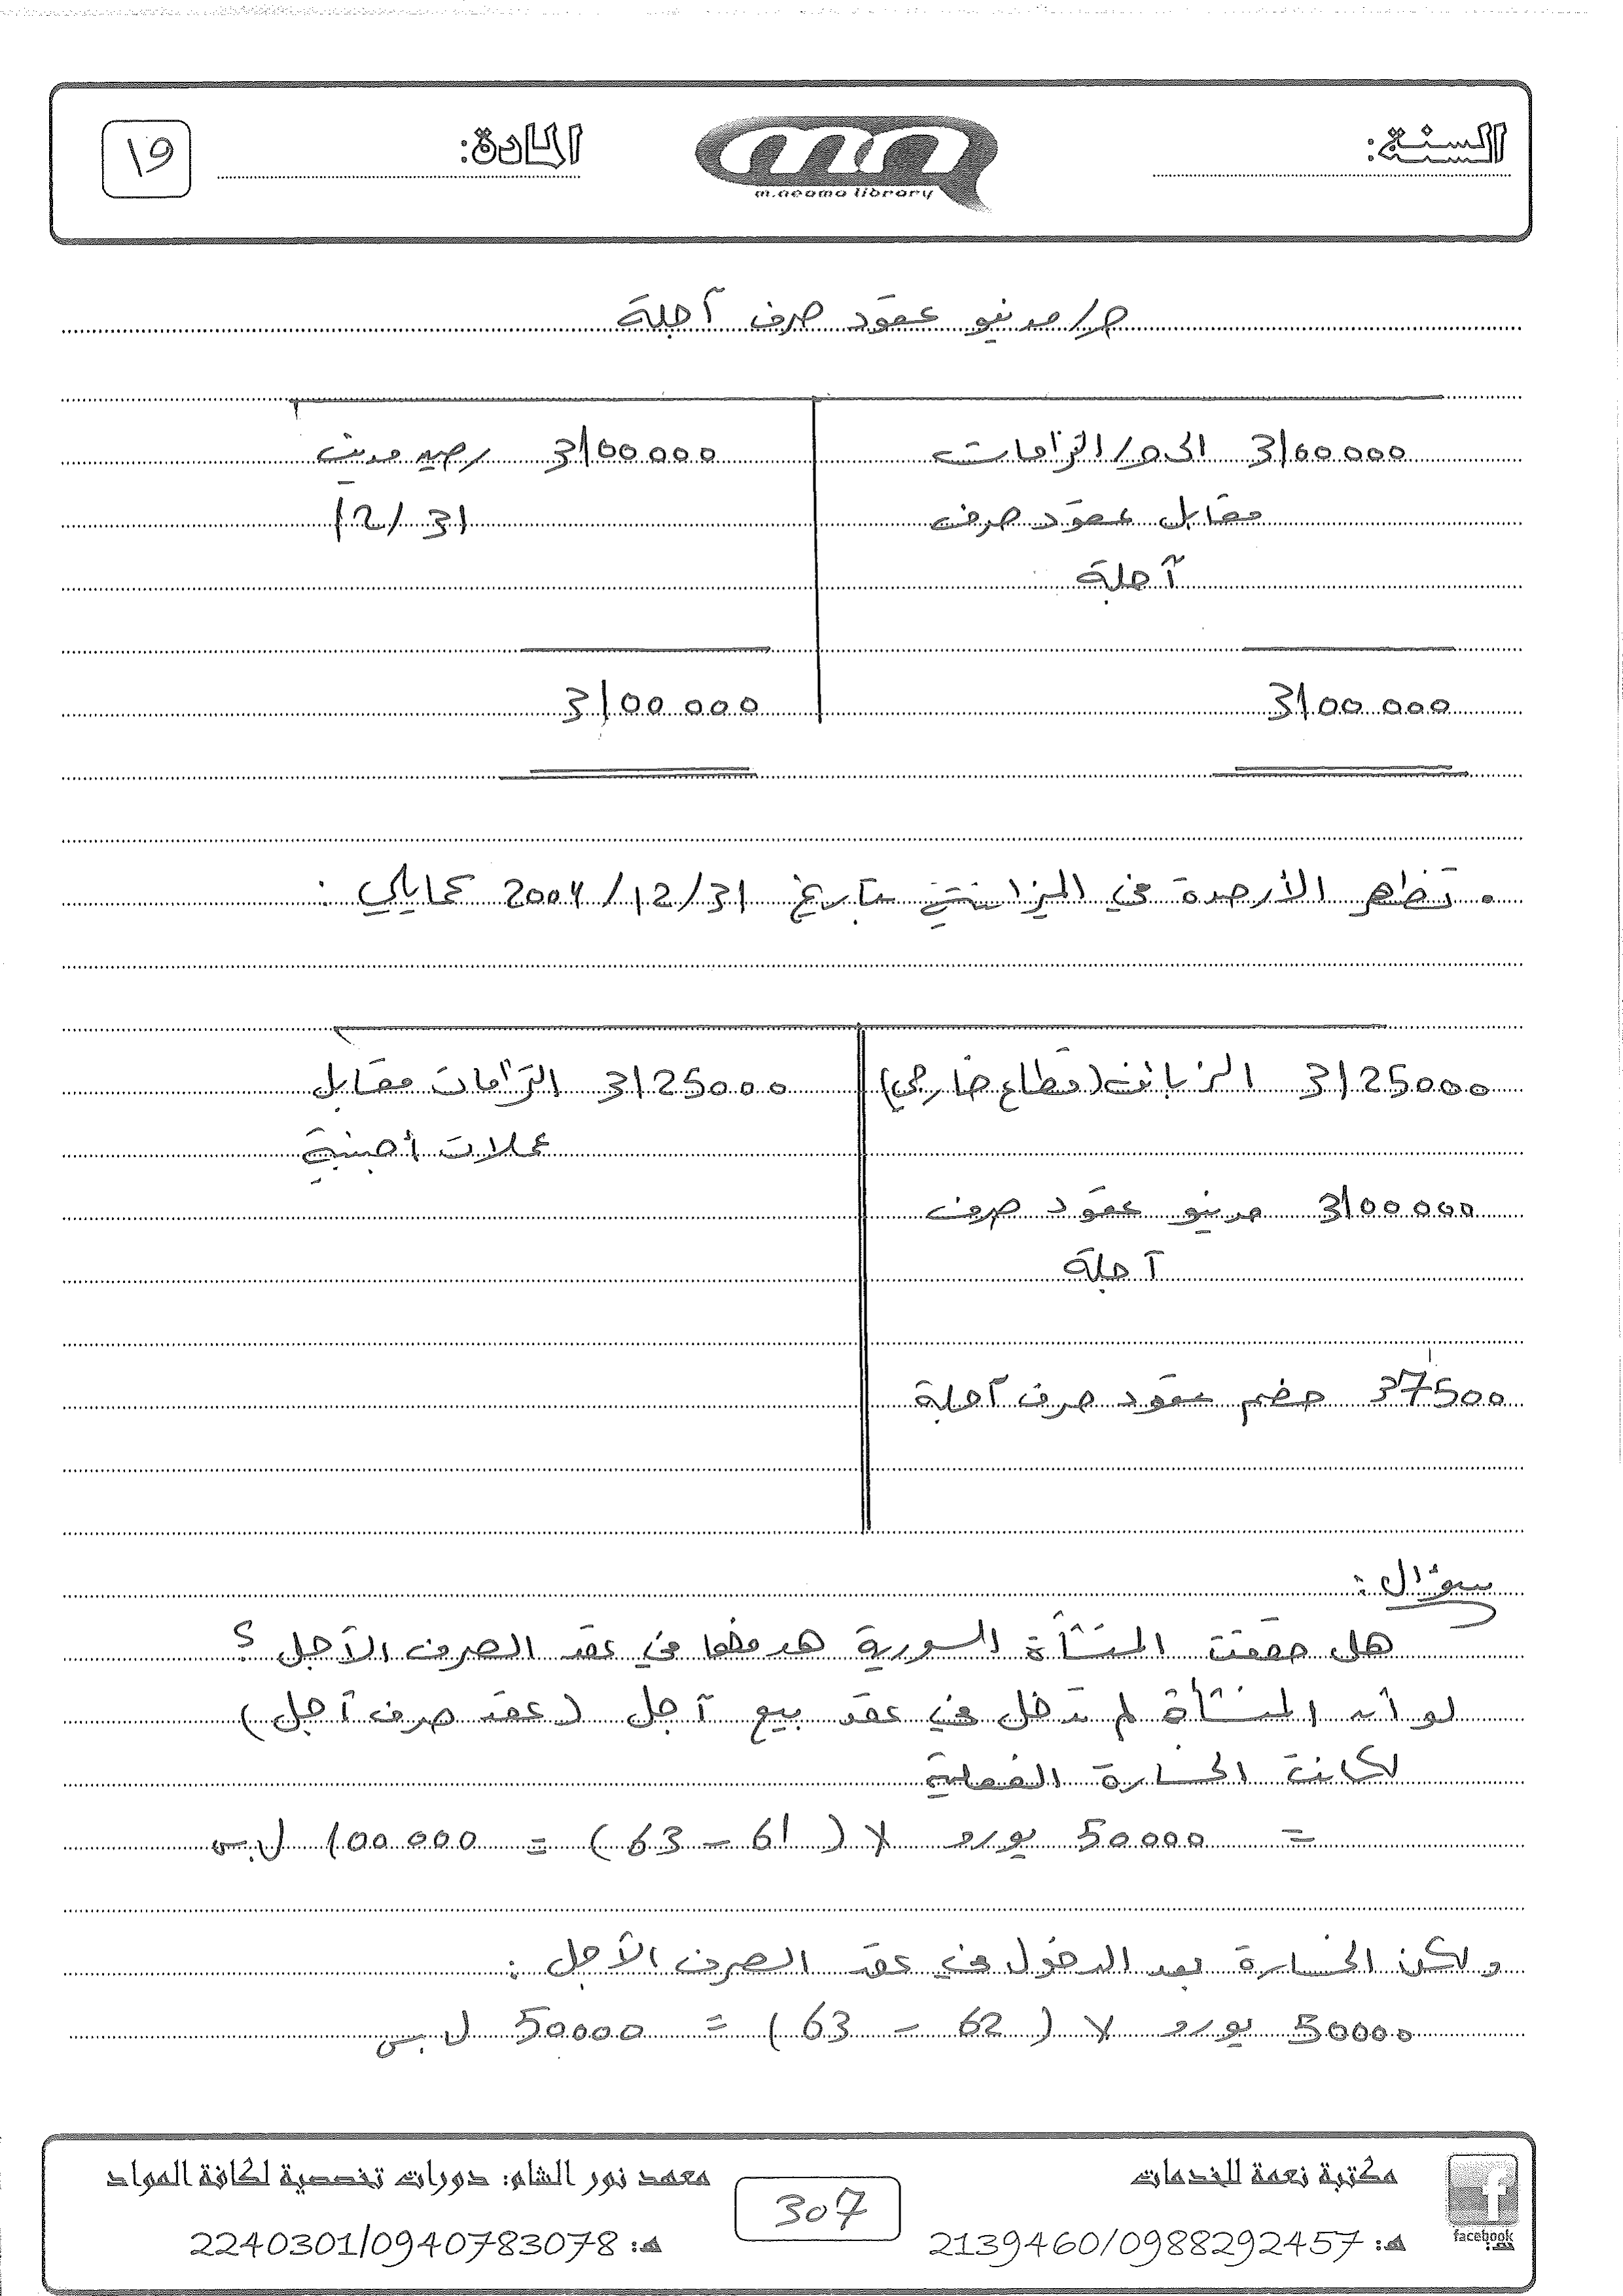 السنة:
m.neama library
المادة:
١٩
ح/ مدينو عقود صرف آجلة
3100000 الى ح/ التزامات
3100000 رصيد مدين
مقابل عقود صرف
12/31
آجلة
3100000
3100000
. تظهر الأرصدة في الميزانية بتاريخ 2004/12/31 كمايلي :
3125000 الزبائن (قطاع خارجي)
3125000 التزامات مقابل
عملات أجنبية
3100000 مدينو عقود صرف
آجلة
37500 خصم عقود صرف آجلة
سؤال :
هل حققت المنشأة السورية هدفها في عقد الصرف الآجل ؟
لو أن المنشأة لم تدخل في عقد بيع آجل (عقد صرف آجل)
لكانت الخسارة الفعلية
= 50000 يورو x (61 - 63) = 100000 ل.س
ولكن الخسارة بعد الدخول في عقد الصرف الآجل :
50000 يورو x (62 - 63) = 50000 ل.س
مكتبة نعمة للخدمات
هـ: 2139460/0988292457
facebook
307
معهد نور الشام: دورات تخصصية لكافة المواد
هـ: 2240301/0940783078